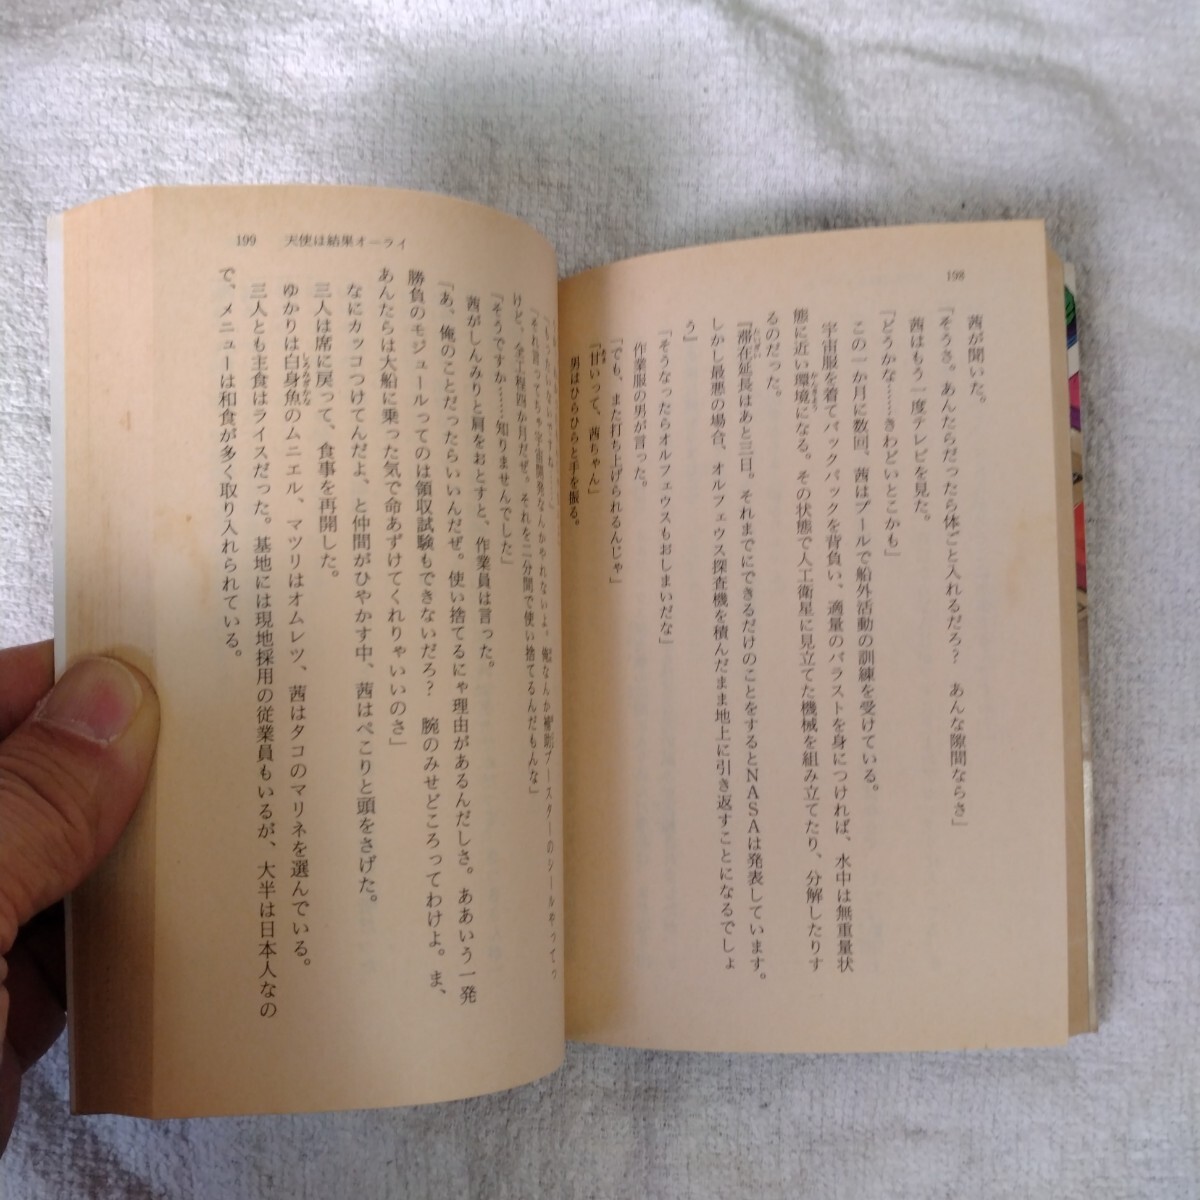 198
茜が聞いた。
「そうさ。あんたらだったら体ごと入れるだろ？　あんな隙間ならさ」
茜はもう一度テレビを見た。
「どうかな……きわどいとこかも」
この一か月に数回、茜はプールで船外活動の訓練を受けている。
宇宙服を着てバックパックを背負い、適量のバラストを身につければ、水中は無重量状
態に近い環境になる。その状態で人工衛星に見立てた機械を組み立てたり、分解したりす
るのだった。
『滞在延長はあと三日。それまでにできるだけのことをするとＮＡＳＡは発表しています。
しかし最悪の場合、オルフェウス探査機を積んだまま地上に引き返すことになるでしょ
う』
「そうなったらオルフェウスもおしまいだな」
作業服の男が言った。
「でも、また打ち上げられるんじゃ」
「甘いって、茜ちゃん」
男はひらひらと手を振る。
199　天使は結果オーライ
「それ言ってちゃ宇宙開発なんかやれないよ。俺なんか補助ブースターのシールやってっ
けど、全工程四か月だぜ。それを二分間で使い捨てるんだもんな」
「そうですか……知りませんでした」
茜がしんみりと肩をおとすと、作業員は言った。
「あ、俺のことだったらいいんだぜ。使い捨てるにゃ理由があるんだしさ。ああいう一発
勝負のモジュールってのは領収試験もできないだろ？　腕のみせどころってわけよ。ま、
あんたらは大船に乗った気で命あずけてくれりゃいいのさ」
なにカッコつけてんだよ、と仲間がひやかす中、茜はぺこりと頭をさげた。
三人は席に戻って、食事を再開した。
ゆかりは白身魚のムニエル、マツリはオムレツ、茜はタコのマリネを選んでいる。
三人とも主食はライスだった。基地には現地採用の従業員もいるが、大半は日本人なの
で、メニューは和食が多く取り入れられている。